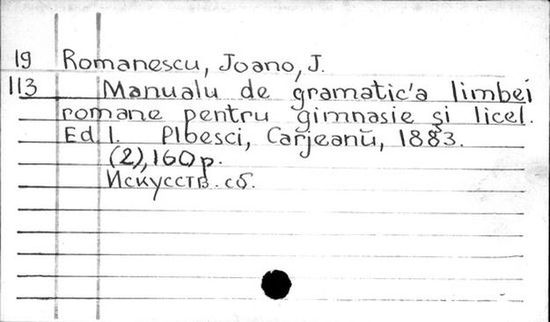 19 Romanescu, Joano, J.
113 Manualu de gramatic'a limbei
romane pentru gimnasie și licel.
Ed I. Ploesci, Carjeanŭ, 1883.
(2), 160 p.
Искусств. сб.